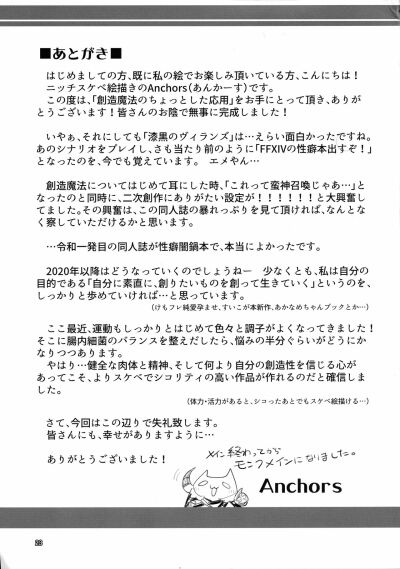 ■あとがき■
はじめましての方、既に私の絵でお楽しみ頂いている方、こんにちは！
ニッチスケベ絵描きのAnchors（あんかーす）です。
この度は、「創造魔法のちょっとした応用」をお手にとって頂き、ありが
とうございます！皆さんのお陰で無事に完成しました！
いやぁ、それにしても「漆黒のヴィランズ」は…えらい面白かったですね。
あのシナリオをプレイし、さも当たり前のように「FFXIVの性癖本出すぞ！」
となったのを、今でも覚えています。　エメやん…
創造魔法についてはじめて耳にした時、「これって蛮神召喚じゃあ…」と
なったのと同時に、二次創作にありがたい設定が！！！！！！と大興奮し
てました。その興奮は、この同人誌の暴れっぷりを見て頂ければ、なんとな
く察していただけるかと思います。
…令和一発目の同人誌が性癖闇鍋本で、本当によかったです。
2020年以降はどうなっていくのでしょうねー　少なくとも、私は自分の
目的である「自分に素直に、創りたいものを創って生きていく」というのを、
しっかりと歩めていければ…と思っています。
（けもフレ純愛孕ませ、すいこが本新作、あかなめちゃんブックとか…）
ここ最近、運動もしっかりとはじめて色々と調子がよくなってきました！
そこに腸内細菌のバランスを整えだしたら、悩みの半分ぐらいがどうにか
なりつつあります。
やはり…健全な肉体と精神、そして何より自分の創造性を信じる心が
あってこそ、よりスケベでシコリティの高い作品が作れるのだと確信しま
した。
（体力・活力があると、シコったあとでもスケベ絵描ける…）
さて、今回はこの辺りで失礼致します。
皆さんにも、幸せがありますように…
ありがとうございました！
メイン終わってから
モンクメインになりました。
Anchors